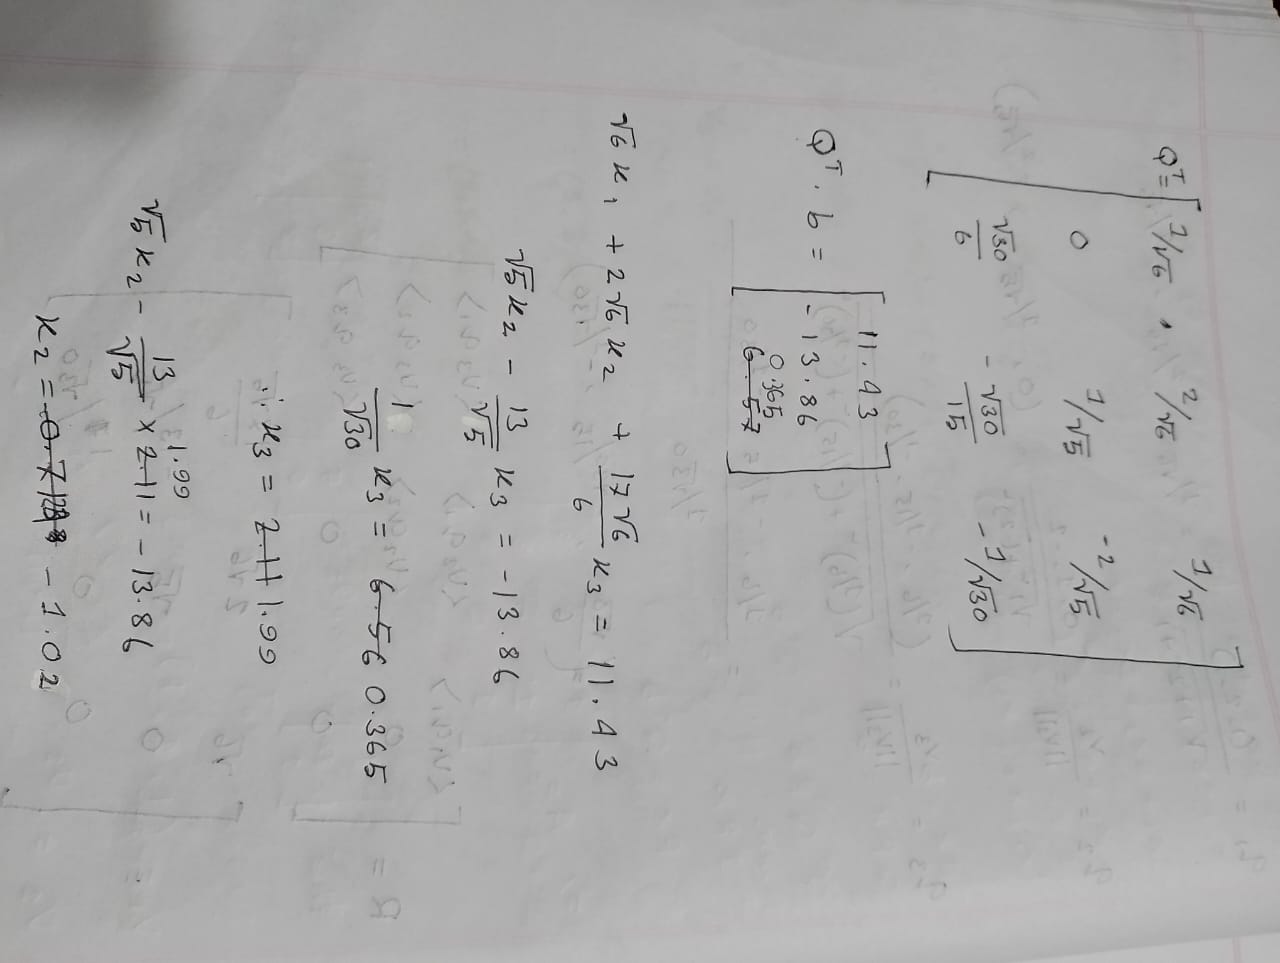 Qᵀ = [ 1/√6 2/√6 1/√6
0 1/√5 -2/√5
√30/6 -√30/15 -1/√30 ]
Qᵀ · b = [ 11.43
-13.86
0.365 ]
√6 x₁ + 2√6 x₂ + 17√6/6 x₃ = 11.43
√5 x₂ - 13/√5 x₃ = -13.86
1/√30 x₃ = 6.56 0.365
∴ x₃ = 2.11 1.99
√5 x₂ - 13/√5 × 2.11 1.99 = -13.86
x₂ = -1.02